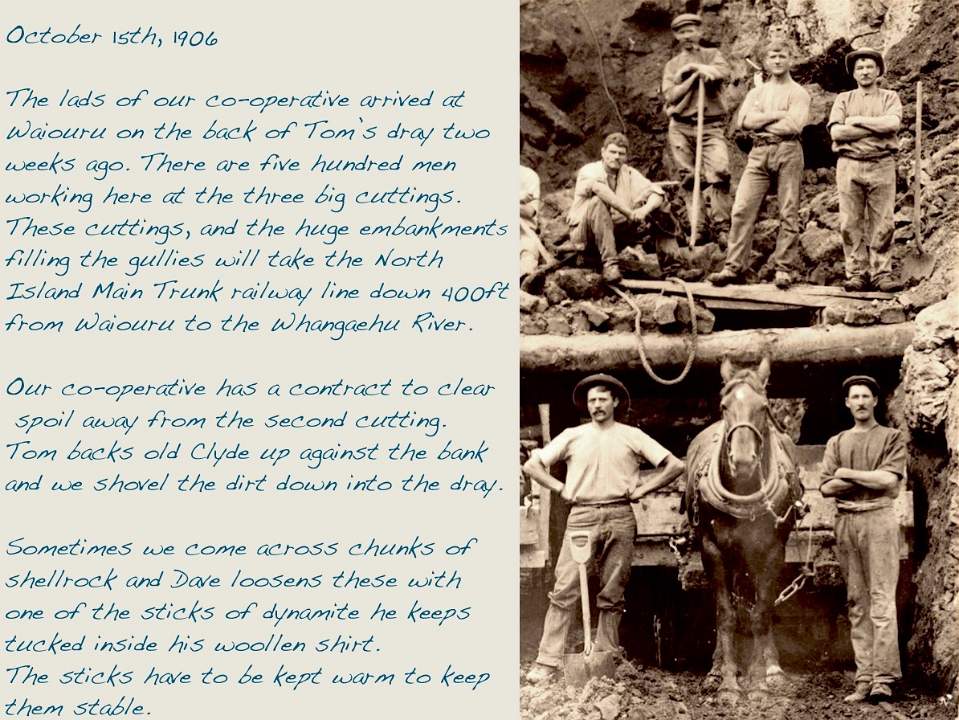 October 15th, 1906
The lads of our co-operative arrived at
Waiouru on the back of Tom's dray two
weeks ago. There are five hundred men
working here at the three big cuttings.
These cuttings, and the huge embankments
filling the gullies will take the North
Island Main Trunk railway line down 400ft
from Waiouru to the Whangaehu River.
Our co-operative has a contract to clear
spoil away from the second cutting.
Tom backs old Clyde up against the bank
and we shovel the dirt down into the dray.
Sometimes we come across chunks of
shellrock and Dave loosens these with
one of the sticks of dynamite he keeps
tucked inside his woollen shirt.
The sticks have to be kept warm to keep
them stable.